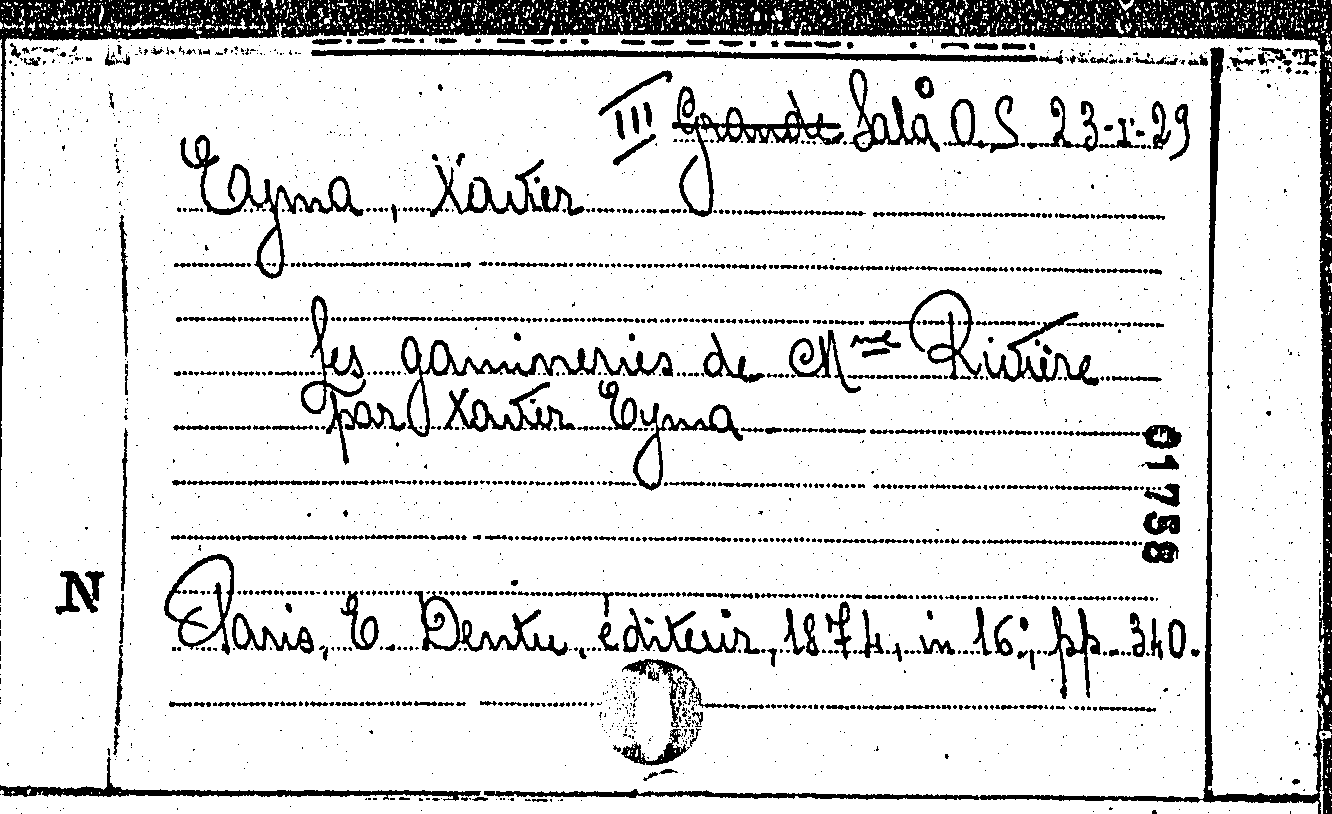 III Grande Sala O.S. 23-I-29
Eyma, Xavier
Les gamineries de Mme Rivière
par Xavier Eyma
01758
N
Paris, E. Dentu, éditeur, 1874, in 16º, pp. 340.